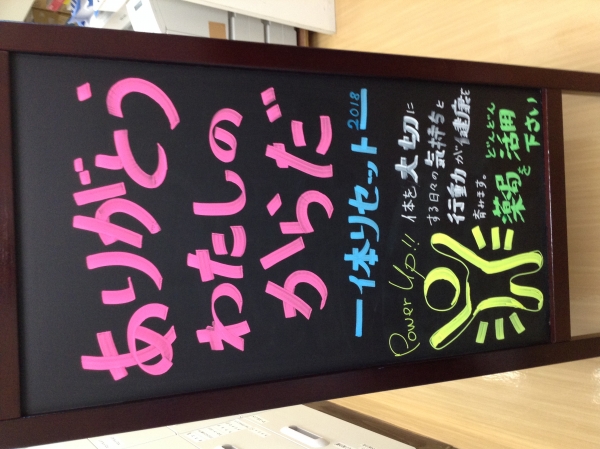 ありがとう
わたしの
からだ
一体リセット 2018
体を大切に
する日々の気持ちと
行動が健康を
育みます。
Power Up!!
薬局を
どんどん
活用
下さい